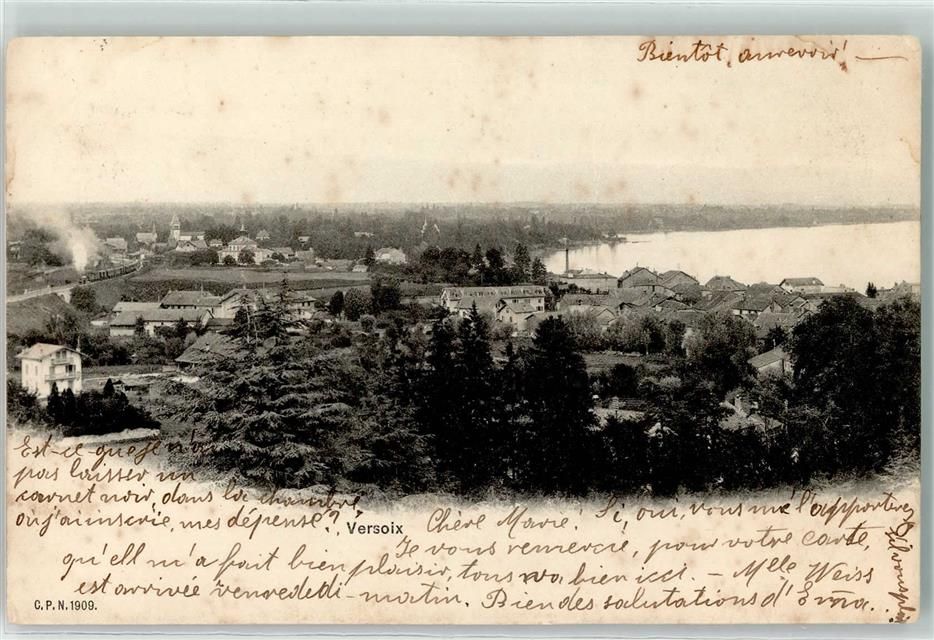 Bientôt, aurevoir! —
Est-ce que je n'ai
pas laisser un
carnet noir, dans la chambre
où j'ai inscrie, mes dépense?
Versoix
Chère Marie! Si, oui, vous me l'apporterez
Je vous remercie, pour votre carte,
qu'ell m'a fait bien plaisir, tous va bien icci. - Melle Weiss
est arrivée venededi-matin. Bien des salutations d'Emma.
C. P. N. 1909.